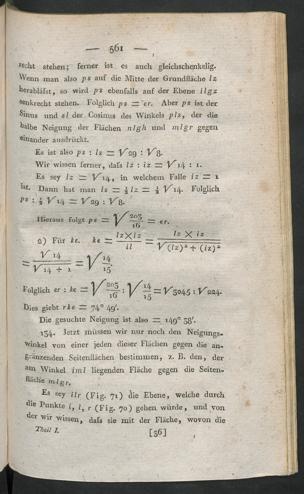 — 561 —
recht stehen; ferner ist es auch gleichschenkelig.
Wenn man also ps auf die Mitte der Grundfläche lz
herabläſst, so wird ps ebenfalls auf der Ebene ilgz
senkrecht stehen. Folglich ps = er. Aber ps ist der
Sinus und sl der Cosinus des Winkels pls, der die
halbe Neigung der Flächen nlgh und mlgr gegen
einander ausdrückt.
Es ist also ps : ls = √29 : √8.
Wir wissen ferner, daſs lz : iz = √14 : 1.
Es sey lz = √14, in welchem Falle iz = 1
ist. Dann hat man ls = ½lz = ½ √14. Folglich
ps : ½ √14 = √29 : √8.
Hieraus folgt ps = √203/16 = er.
2) Für ke. ke = lz×iz/il = lz × iz/√(lz)² + (iz)²
= √14/√14 + 1 = √14/15.
Folglich er : ke = √203/16 : √14/15 = √3045 : √224.
Dies giebt rke = 74° 49′.
Die gesuchte Neigung ist also = 149° 38′.
134. Jetzt müssen wir nur noch den Neigungs-
winkel von einer jeden dieser Flächen gegen die an-
gränzenden Seitenflächen bestimmen, z. B. den, der
am Winkel iml liegenden Fläche gegen die Seiten-
fläche mlgr.
Es sey ilr (Fig. 71) die Ebene, welche durch
die Punkte i, l, r (Fig. 70) gehen würde, und von
der wir wissen, daſs sie mit der Fläche, wovon die
Theil I. [36]